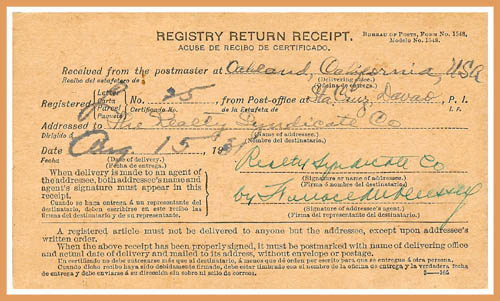 REGISTRY RETURN RECEIPT.
BUREAU OF POSTS, FORM No. 1548.
Modelo No. 1548.
ACUSE DE RECIBO DE CERTIFICADO.
Received from the postmaster at Oakland, California, USA
Recibo del estafetero de (Delivering office.)
(Oficina de entrega.)
Registered Letter Carta Parcel Paquete No. 25 from Post-office at Sta. Cruz, Davao, P. I.
Certificado No. de la Estafeta de I. F.
Addressed to The Realty Syndicate Co
Dirigido á (Name of addressee.)
(Nombre del destinatario.)
Date Aug 15, 193
Fecha (Date of delivery.)
(Fecha de entrega.)
Realty Syndicate Co
(Signature or name of addressee.)
(Firma ó nombre del destinatario.)
When delivery is made to an agent of the addressee, both addressee's name and agent's signature must appear in this receipt.
Cuando se haga entrega á un representante del destinatario, deben escribirse en este recibo las firmas del destinatario y de su representante.
by
(Signature of addressee's agent.)
(Firma del representante del destinatario.)
A registered article must not be delivered to anyone but the addressee, except upon addressee's
written order.
When the above receipt has been properly signed, it must be postmarked with name of delivering office
and actual date of delivery and mailed to its address, without envelope or postage.
Un certificado no debe entregarse más que al destinatario, á menos que dé orden por escrito para que se entregue á otra persona.
Cuando dicho recibo haya sido debidamente firmado, debe estar timbrado con el nombre de la oficina de entrega y la verdadera fecha
de entrega y debe enviarse á su dirección sin sobre ni sello de correo.